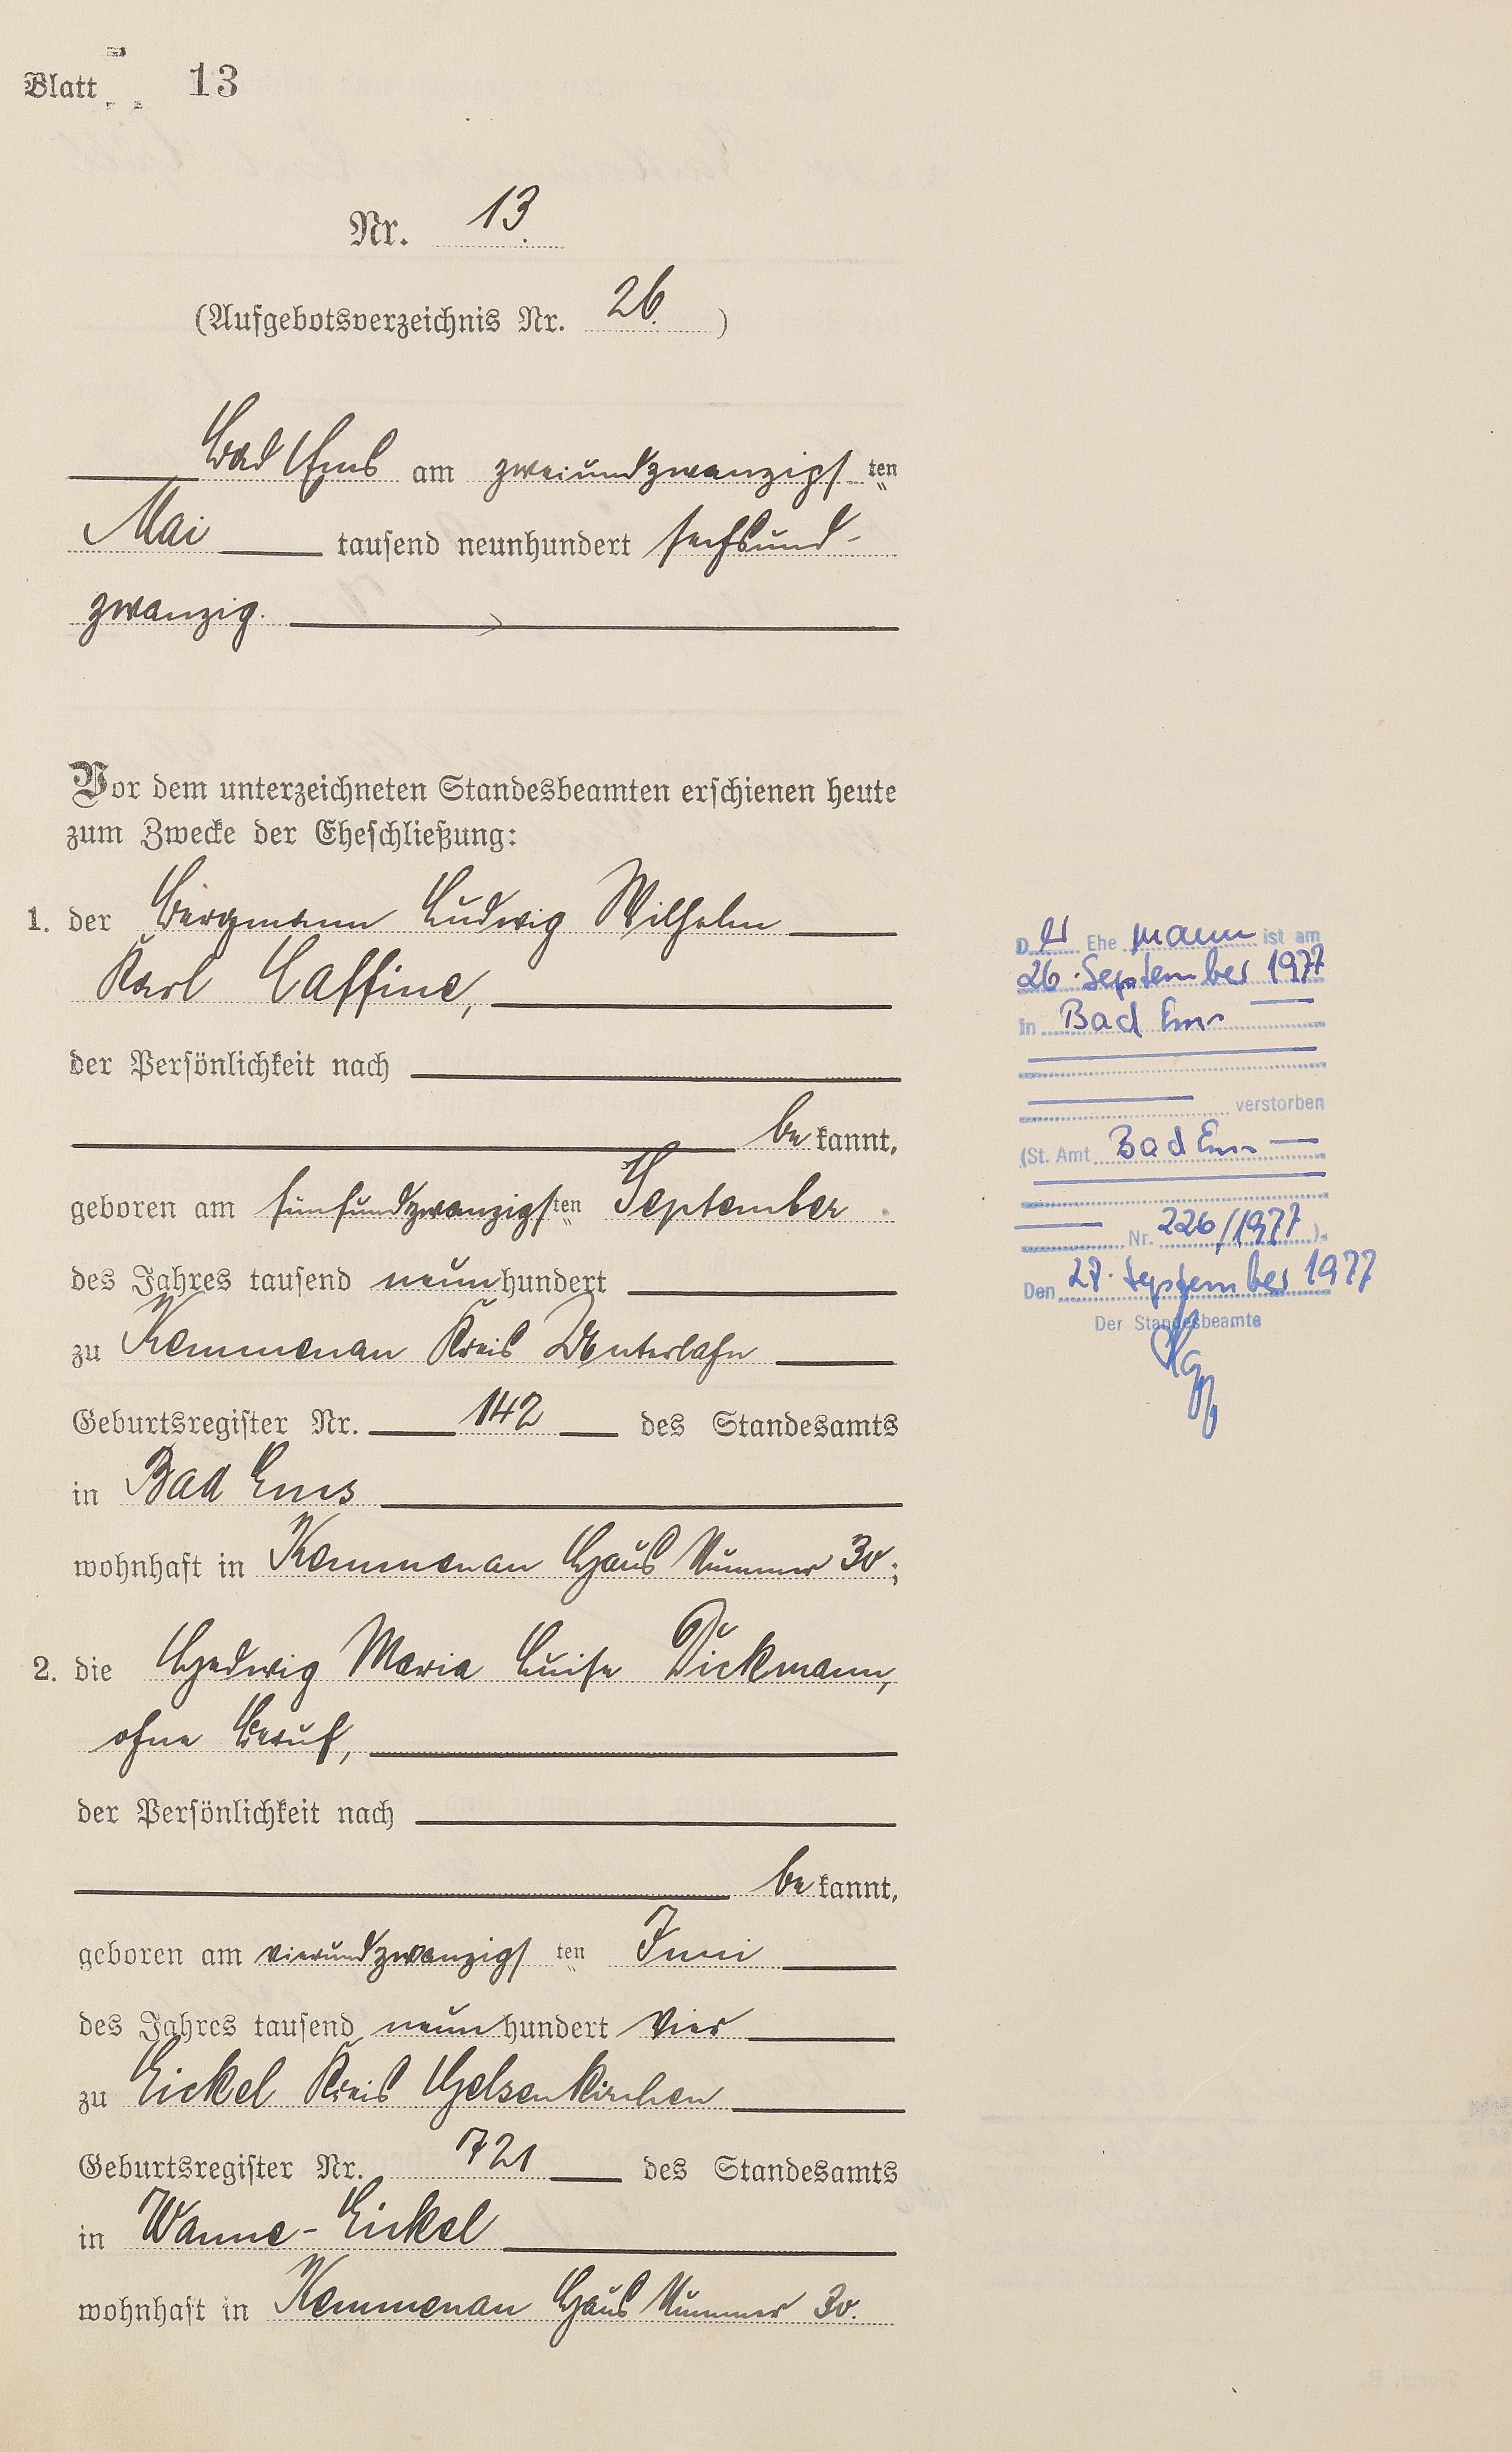 Blatt 13
Nr. 13.
(Aufgebotsverzeichnis Nr. 26.)
Bad Ems am zweiundzwanzigsten
Mai tausend neunhundert sechsund-
zwanzig.
Vor dem unterzeichneten Standesbeamten erschienen heute
zum Zwecke der Eheschließung:
1. der Bergmann Ludwig Wilhelm
Karl Caffine,
der Persönlichkeit nach
be kannt,
geboren am fünfundzwanzigsten September
des Jahres tausend neunhundert
zu Kemmenau Kreis Unterlahn
Geburtsregister Nr. 142 des Standesamts
in Bad Ems
wohnhaft in Kemmenau Haus Nummer 30;
2. die Hedwig Maria Luise Dickmann,
ohne Beruf,
der Persönlichkeit nach
be kannt,
geboren am vierundzwanzigsten Juni
des Jahres tausend neunhundert vier
zu Eickel Kreis Gelsenkirchen
Geburtsregister Nr. 721 des Standesamts
in Wanne-Eickel
wohnhaft in Kemmenau Haus Nummer 30.
Der Ehemann ist am
26. September 1977
in Bad Ems
verstorben
(St. Amt Bad Ems
Nr. 226/1977).
Den 27. September 1977
Der Standesbeamte